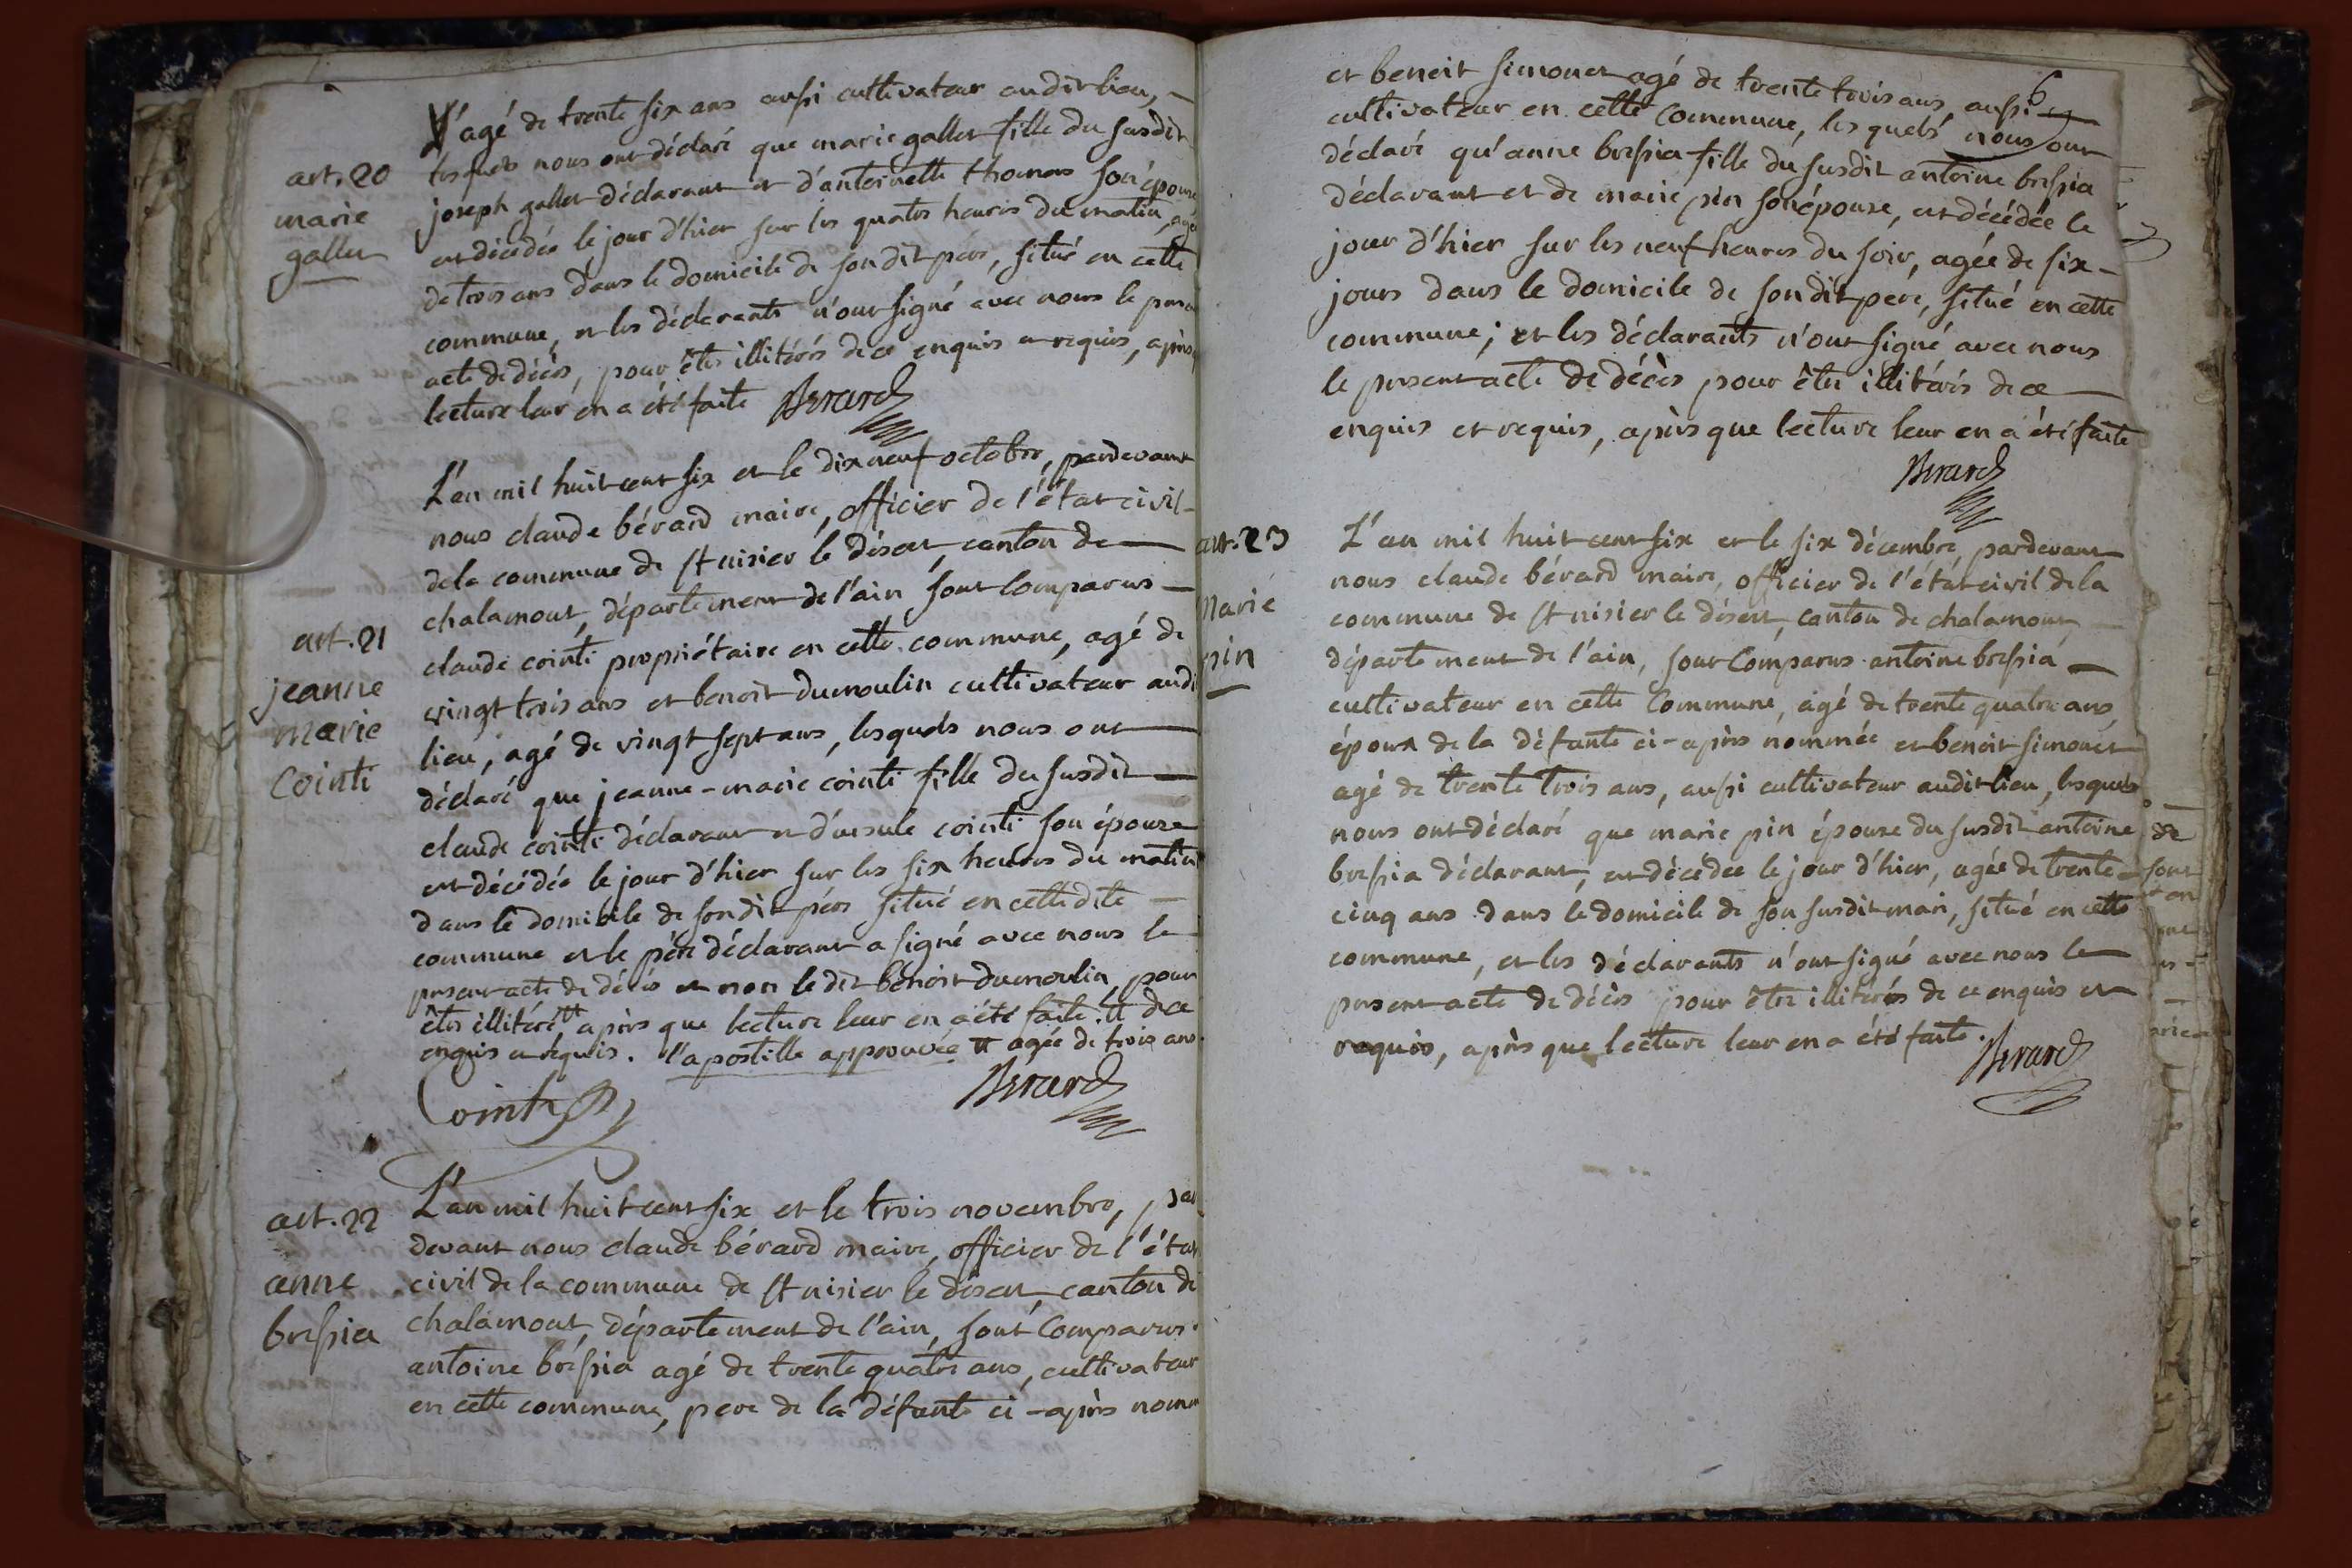 agé de trente six ans aussi cultivateur audit lieu,
art. 20
marie
gallet
lesquels nous ont déclaré que marie gallet fille du susdit
joseph gallet déclarant et d'antoinette thomas son épouse
est décédée le jour d'hier sur les quatre heures du matin, agée
de trois ans dans le domicile de sondit père, situé en cette
commune, et les déclarants n'ont signé avec nous le present
acte de décès, pour être illitérés de ce enquis et requis, après q
lecture leur en a été faite Berard
L'an mil huit cent six et le dix neuf octobre, pardevant
nous claude bérard maire, officier de l'état civil
de la commune de st nisier le désert, canton de
chalamont, département de l'ain, sont comparus
art. 21
jeanne
marie
Cointi
claude cointi propriétaire en cette commune, agé de
vingt trois ans et benoit dumoulin cultivateur audi
lieu, agé de vingt sept ans, lesquels nous ont
déclaré que jeanne-marie cointi fille du susdit
claude cointi déclarant et d'ursule cointi son épouse
est décédée le jour d'hier sur les six heures du matin
dans le domicile de sondit père situé en cette dite
commune et le père déclarant a signé avec nous le
present acte de décès et non le dit benoit dumoulin, pour
être illitéré tt après que lecture leur en a été faite. tt de ce
enquis et requis. l'apostille approuvée tt agée de trois ans
Cointi Berard
art. 22
anne
bressia
L'an mil huit cent six et le trois novembre, par
devant nous claude bérard maire, officier de l'état
civil de la commune de st nisier le désert, canton de
chalamont, département de l'ain, sont Comparus
antoine bressia agé de trente quatre ans, cultivateur
en cette commune, pere de la défunte ci-après nomm
6
et benoit simonet agé de trente trois ans, aussi
cultivateur en cette Commune, les quels nous ont
déclaré qu'anne bressia fille du susdit antoine bressia
déclarant et de marie pin son épouse, est décédée le
jour d'hier sur les neuf heures du soir, agée de six
jours dans le domicile de sondit pere, situé en cette
commune; et les déclarants n'ont signé avec nous
le present acte de décès pour être illitérés de ce
enquis et requis, après que lecture leur en a été faite
Berard
art. 23
Marie
pin
L'an mil huit cent six et le six décembre, pardevant
nous claude bérard maire, officier de l'état civil de la
commune de st nisier le désert, canton de chalamont,
département de l'ain, sont Comparus antoine bressia
cultivateur en cette Commune, agé de trente quatre ans,
époux de la défunte ci-après nommée et benoit simonet
agé de trente trois ans, aussi cultivateur audit lieu, lesquels
nous ont déclaré que marie pin épouse du susdit antoine
bressia déclarant, est décédée le jour d'hier, agée de trente
cinq ans dans le domicile de son susdit mari, situé en cette
commune, et les déclarants n'ont signé avec nous le
present acte de décès pour être illitérés de ce enquis et
requis, après que lecture leur en a été faite.
Berard